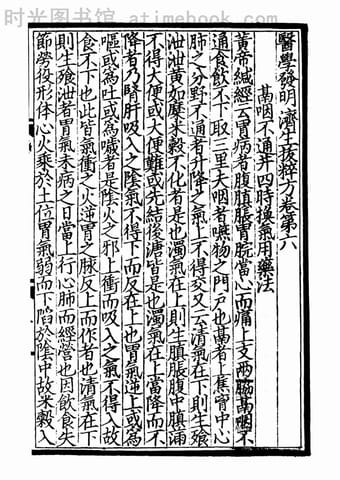 时光图书馆 atimebook.com
醫學發明濟生拔粹方卷第六
膈咽不通并四時換氣用藥法
黃帝鍼經云胃病者腹䐜脹胃脘當心而痛上支兩脇膈咽不
通食飲不下取三里夫咽者嚥物之門戶也膈者上焦賁中心
肺之分野不通者升降之氣上不得交又云清氣在下則生飱
泄泄黃如糜米穀不化者是也濁氣在上則生䐜脹腹中䐜滿
不得大便或大便難或先結後溏皆是也濁氣在上當降而不
降者乃腎肝吸入之陰氣不得下而反在上也胃氣逆上或爲
嘔或爲吐或爲噦者是陰火之邪上衝而吸入之氣不得入故
食不下也此皆氣衝之火逆胃之脉反上而作者也清氣在下
則生飱泄者胃氣未病之日當上行心肺而經營也因飲食失
節勞役形体心火乘於土位胃氣弱而下陷於陰中故米穀入